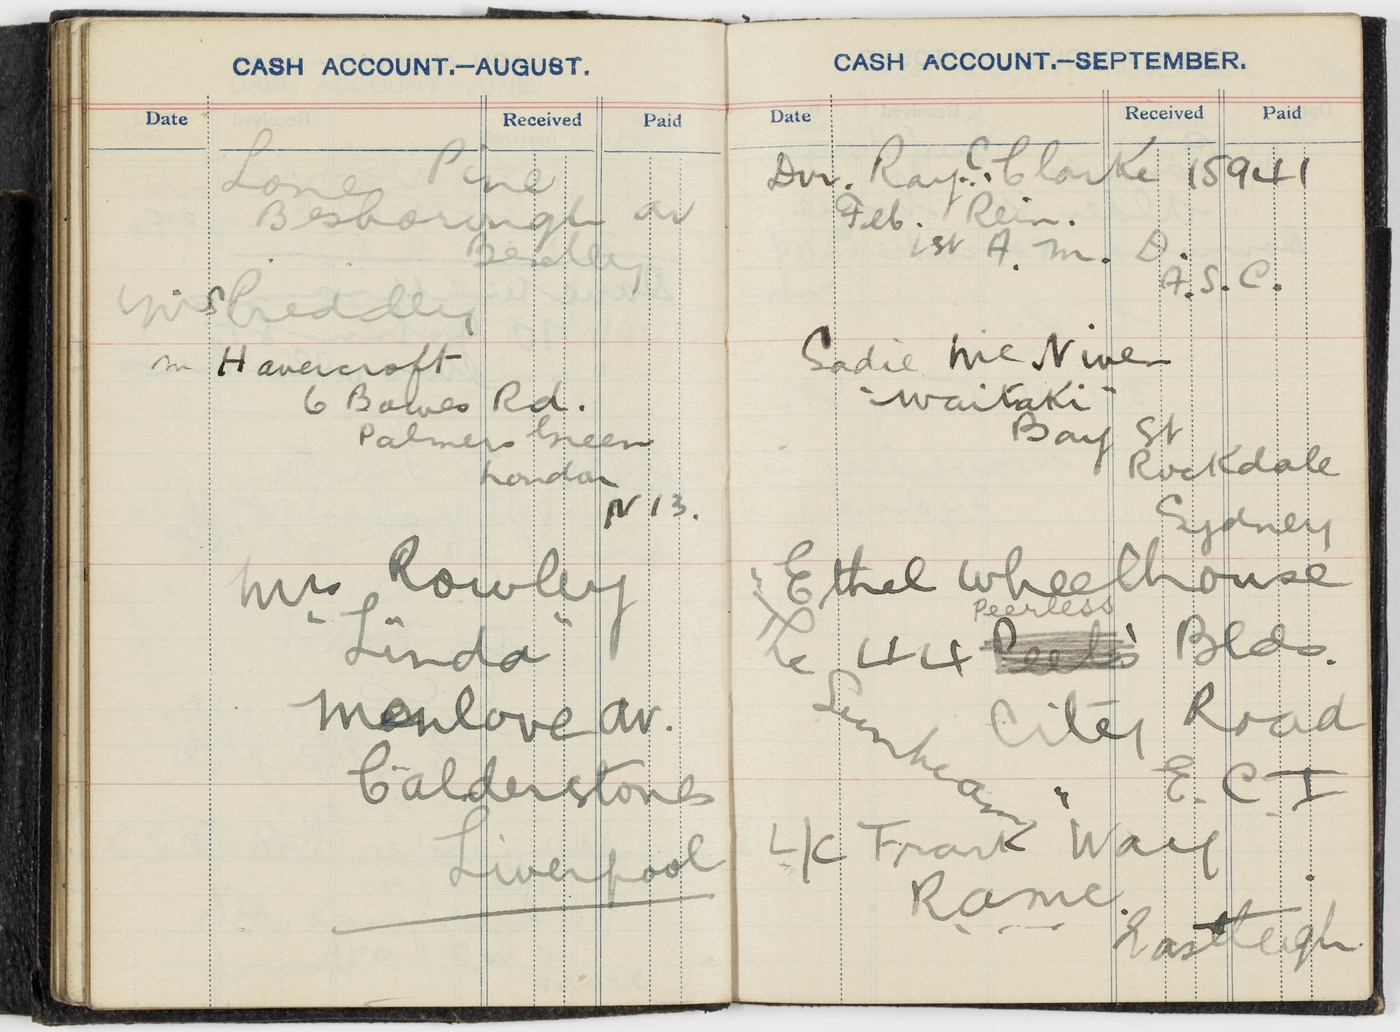 CASH ACCOUNT.—AUGUST.
Date Received Paid
Lone Pine
Besborough av
Bexley
Miss Preddley
M Havercroft
6 Bowes Rd.
Palmers Green
London
N 13.
Mrs Rowley
"Linda"
Menlove av.
Calderstones
Liverpool
CASH ACCOUNT.—SEPTEMBER.
Date Received Paid
Dvr. Ray. C. Clarke 15941
Feb. Rein.
1st A. M. D.
A.S.C.
Sadie McNiven
"Waitaki"
Bay St
Rockdale
Sydney
Ethel Wheelhouse
Peerless
44 Peel's Blds.
City Road
E. C. I
L/c Frank Way
Rame.
Eastleigh